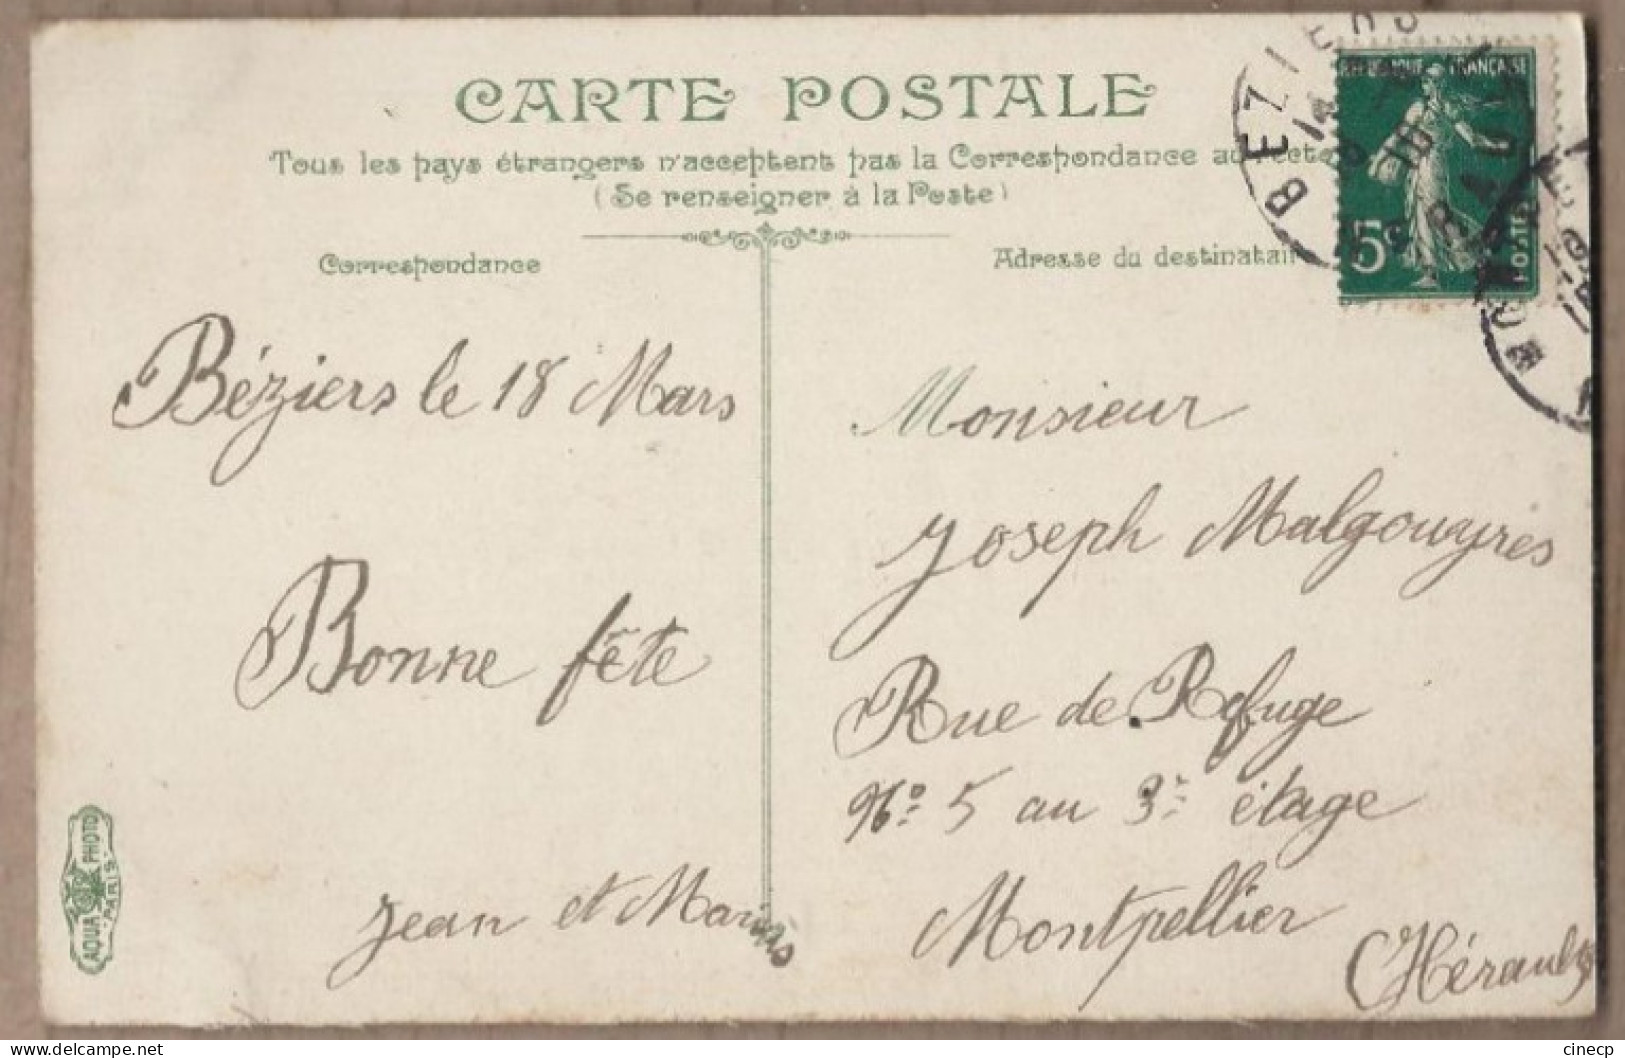 CARTE POSTALE
Tous les pays étrangers n'acceptent pas la Correspondance au recto
(Se renseigner à la Poste)
Correspondance
Adresse du destinatair
RÉPUBLIQUE FRANÇAISE
5
POSTES
BEZIERS
Béziers le 18 Mars
Bonne fête
Jean et Marius
Monsieur
Joseph Malgouyrès
Rue de Refuge
Nº 5 au 3e étage
Montpellier
(Hérault)
AQUA PHOTO
PARIS
cinecp